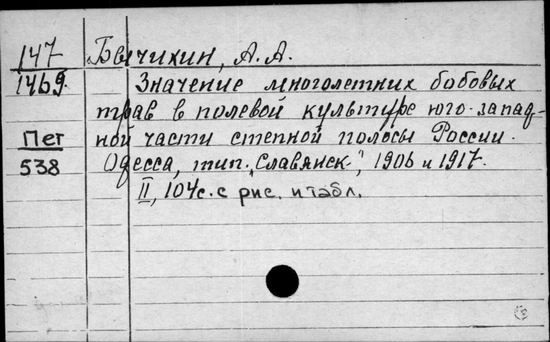 147 Бычихин, А. А.
1469. Значение многолетних бобовых
трав в полевой культуре юго-запад-
Пет ной части степной полосы России.
538 Одесса, тип. „Славянск.", 1906 и 1917.
II, 104 с. с рис. и табл.